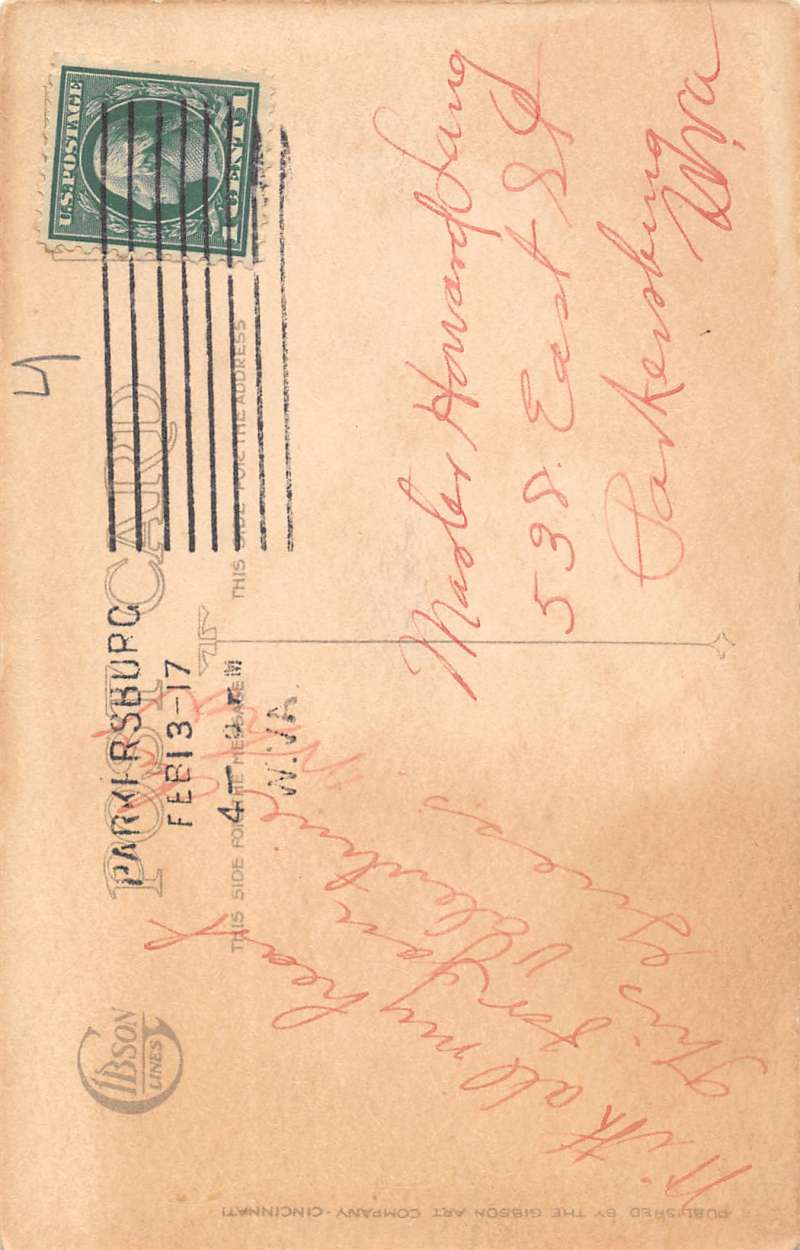 POST CARD
THIS SIDE FOR THE MESSAGE
THIS SIDE FOR THE ADDRESS
U.S. POSTAGE
1 CENT 1
PARKERSBURG
FEB 13-17
4-
W.VA.
4
GIBSON
LINES
With all my hear
for your valentine
this Gives
Master Howard Lang
538. East St
Parkersburg
W.va
PUBLISHED BY THE GIBSON ART COMPANY-CINCINNATI